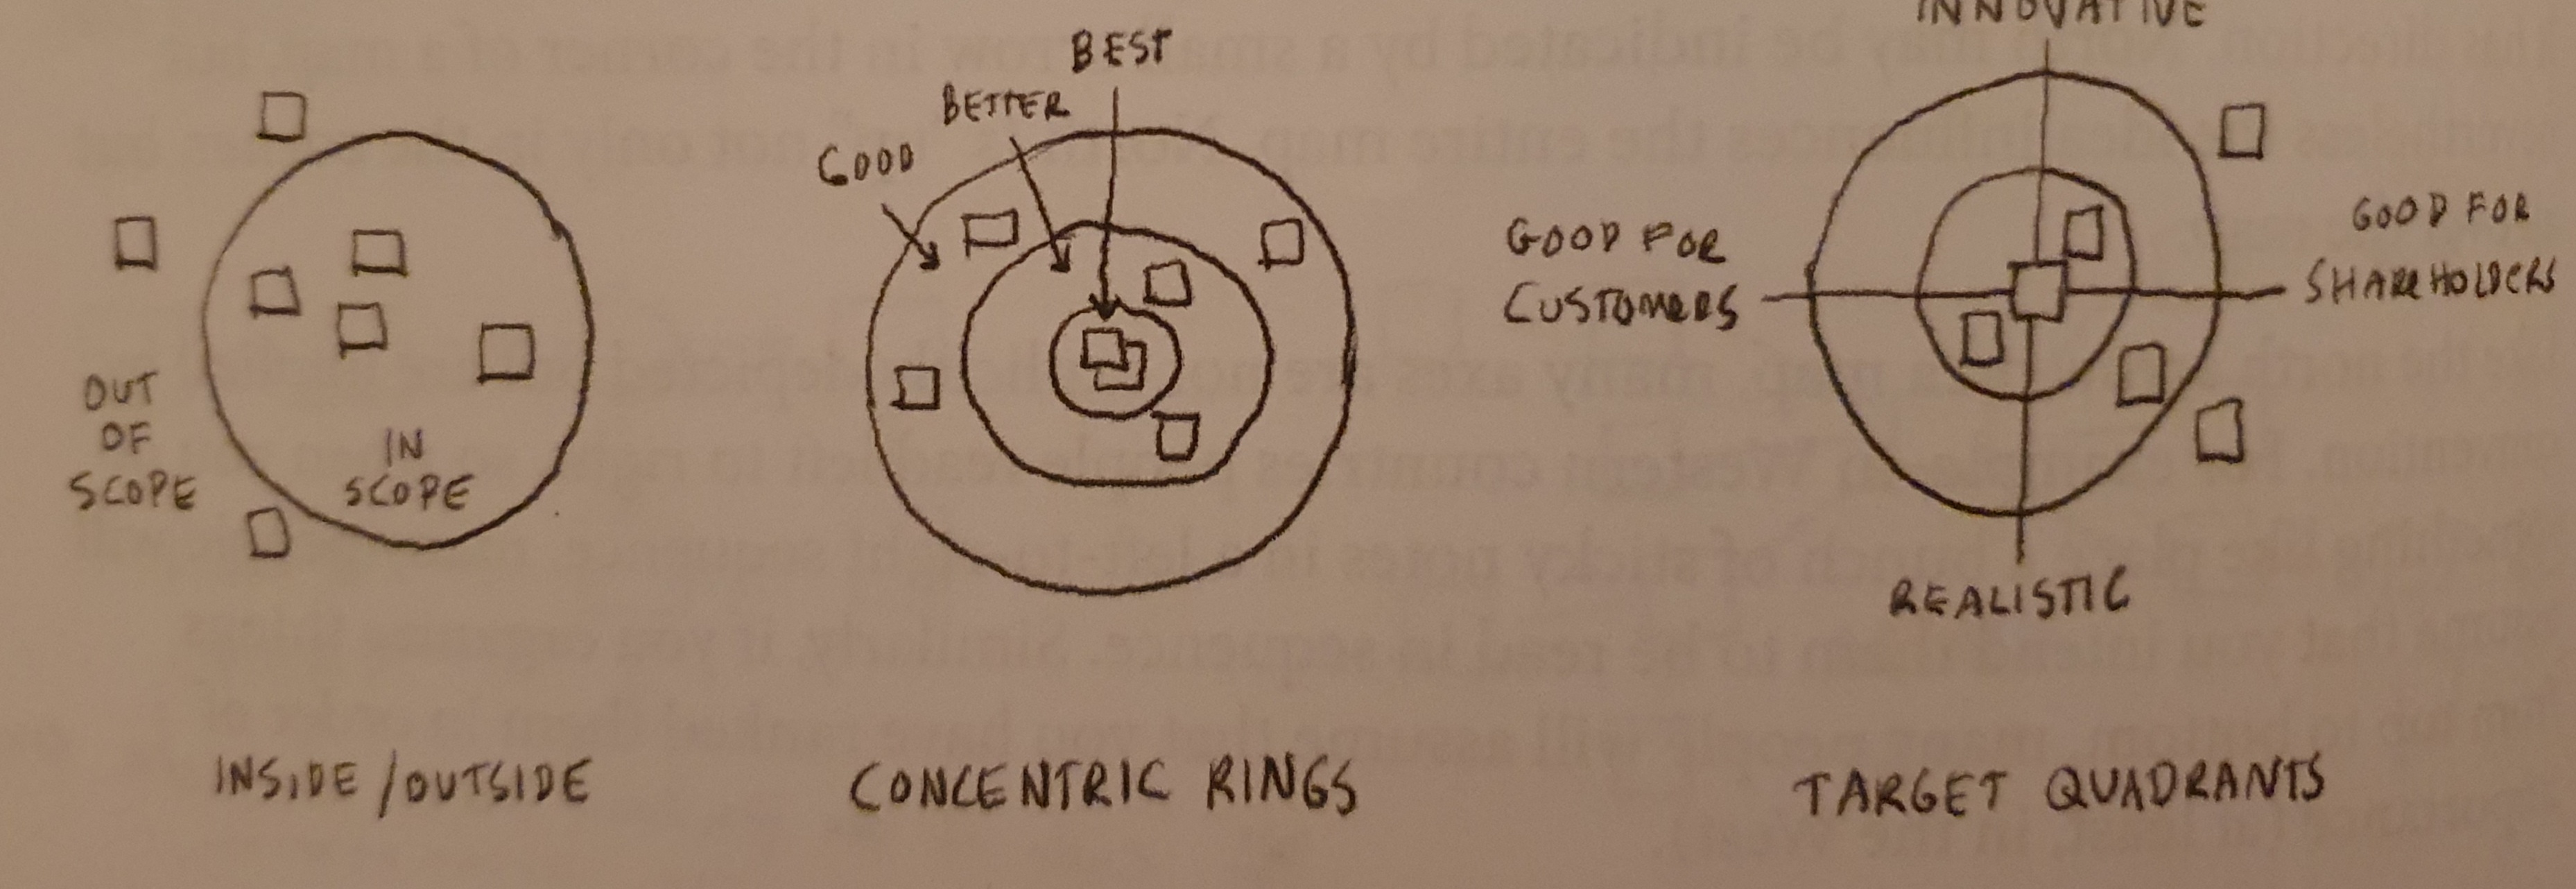 OUT
OF
SCOPE
IN
SCOPE
INSIDE/OUTSIDE
BEST
BETTER
GOOD
CONCENTRIC RINGS
INNOVATIVE
GOOD FOR
CUSTOMERS
GOOD FOR
SHAREHOLDERS
REALISTIC
TARGET QUADRANTS